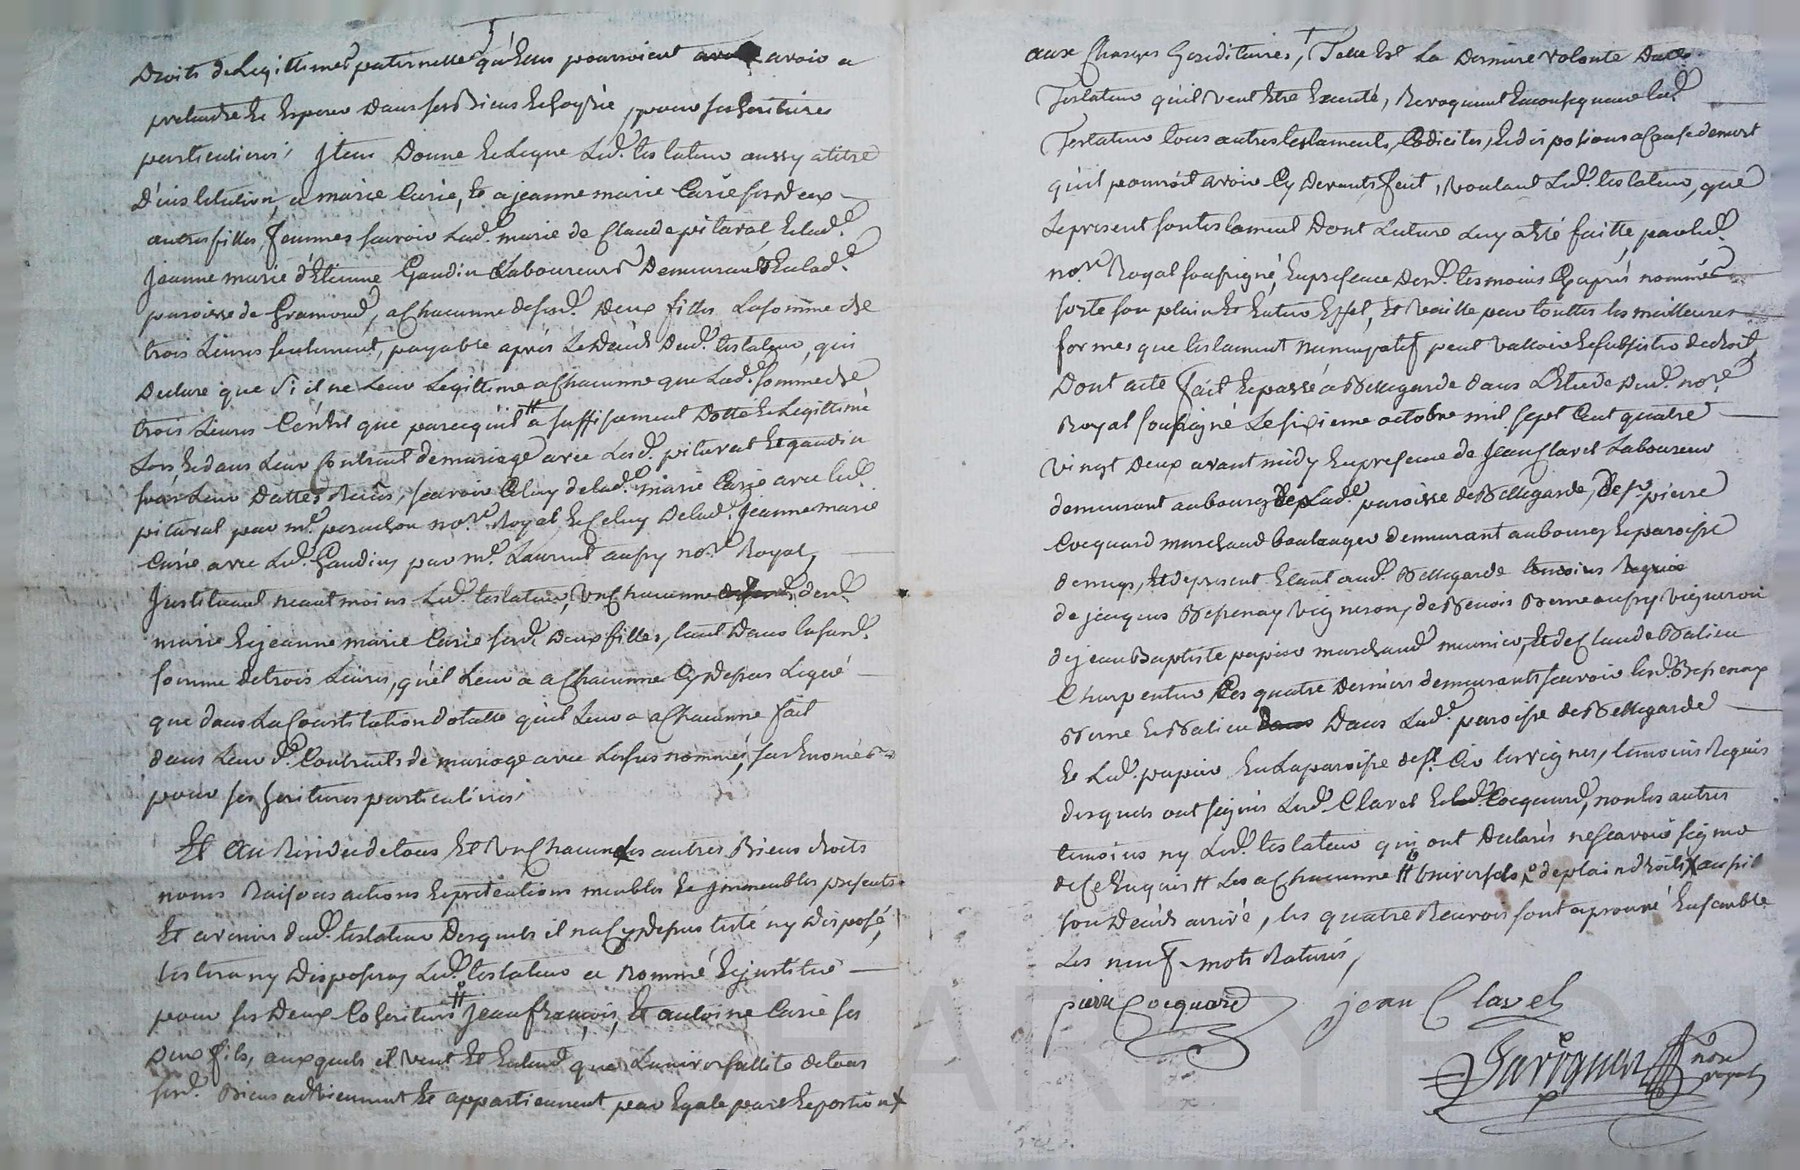 Droits de Legittimes paternelle qu'Elles pourroient avoir a
pretendre Et Esperer Dans ses Biens Et hoyrie, pour ses heritieres
particulieres, Item Donne Et Legue Led.t testateur aussy a titre
D'institution, a marie Carie, Et a jeanne marie Carie ses deux
autres filles, femmes scavoir Lad.e marie de Claude pitaval Et lad.e
Jeanne marie d'Etienne Gaudin Laboureurs Demeurants En lad.e
paroisse de Gramond, a Chacunne desd.es Deux filles La somme de
trois Livres seulement, payable après Le Deceds Dud.t testateur, qui
Declare que si il ne Leur Legittime a Chacunne que Lad.e somme de
trois Livres C'est que parcequ'il # a suffisament Dotté Et Legittimé
Lors Et dans Leur Contract de mariage avec Lesd. pitaval Et gaudin
sous Leur Dattes Recûs, scavoir Celuy de lad.e marie Carie avec led.t
pitaval par m.e perachon no.re Royal Et Celuy Delad.e Jeanne marie
Carie avec Led.t Gaudin par m.e Laurent aussy no.re Royal,
Instituant neantmoins Led.t testateur, Une Chacunne desd.
marie Et jeanne marie Carie sesd. Deux filles, tant Dans lasusd.
somme de trois Livres, qu'il Leur a a Chacunne Cy Dessus Legué
que dans La Constitution dotalle qu'il Leur a a Chacunne fait
dans Leur d. Contracts de mariage avec Les sus nommés, sus Enonces
pour ses heritieres particulieres,
Et Au Residu de tous Et Un Chacun ses autres Biens droits
noms Raisons actions Et pretentions meubles Et Immeubles presents
Et avenir dud.t testateur Desquels il n'a Cy dessus testé ny Disposé,
testera ny Disposera, Led.t testateur a Nommé Et institué
pour ses Deux Coheritiers # Jean françois, Et antoine Carie ses
Deux fils, auxquels il Veut Et Entend que L'universallité de tous
sesd. Biens adviennent Et appartiennent par Egale part Et portion X
aux Charges hereditaires, Telle Est La Derniere volonté Dud.
Testateur qu'il Veut Etre Executé, Revoquant En consequence led.t
Testateur tous autres testaments, Codiciles, Et dispositions a Cause de mort
qu'il pourroit avoir Cy Devants fait, Voulant Led.t testateur, que
Le present son testament Dont Lecture Luy a Eté faitte par led.t
no.re Royal soussigné, En presence Des d. temoins Cy après nommés
sorte son plain Et Entier Effet, Et Vaille par touttes les meilleures
formes que testament Nuncupatif peut Valloir Et subsister de droit,
Dont acte fait Et passé a Bellegarde dans L'Etude Dud.t no.re
Royal soussigné Le sixieme octobre mil sept Cent quatre
vingt Deux avant midy En presence de Jean Clavel Laboureur
demeurant au bourg Et Lad.e paroisse de Bellegarde, De s.r pierre
Cocquard marchand boulanger demeurant au bourg Et paroisse
de Et de present Etant aud.t Bellegarde temoins Requis
de jacques Bessenay Vigneron, de Benois Berne aussy Vigneron
de jean Baptiste papier marchand meunier, Et de Claude Balieu
Charpentier Les quatre Derniers demeurants scavoir lesd. Bessenay
Berne Et Balieu Dans Lad.e paroisse de Bellegarde
Et Led.t papier En La paroisse de s.t Cir les vignes, temoins Requis
desquels ont signés Lesd. Clavel Et Cocquard, non les autres
temoins ny Led.t testateur qui ont Declarés ne scavoir signer
de Ce Enquis # Les a Chacunne # Universels, de plain droits X au sil
son Deceds arrivé, les quatre Renvois sont aprouvé Ensemble
Les neuf mots Raturés,
pierre Cocquard jean Clavel
no.re
royal
CHARLEY